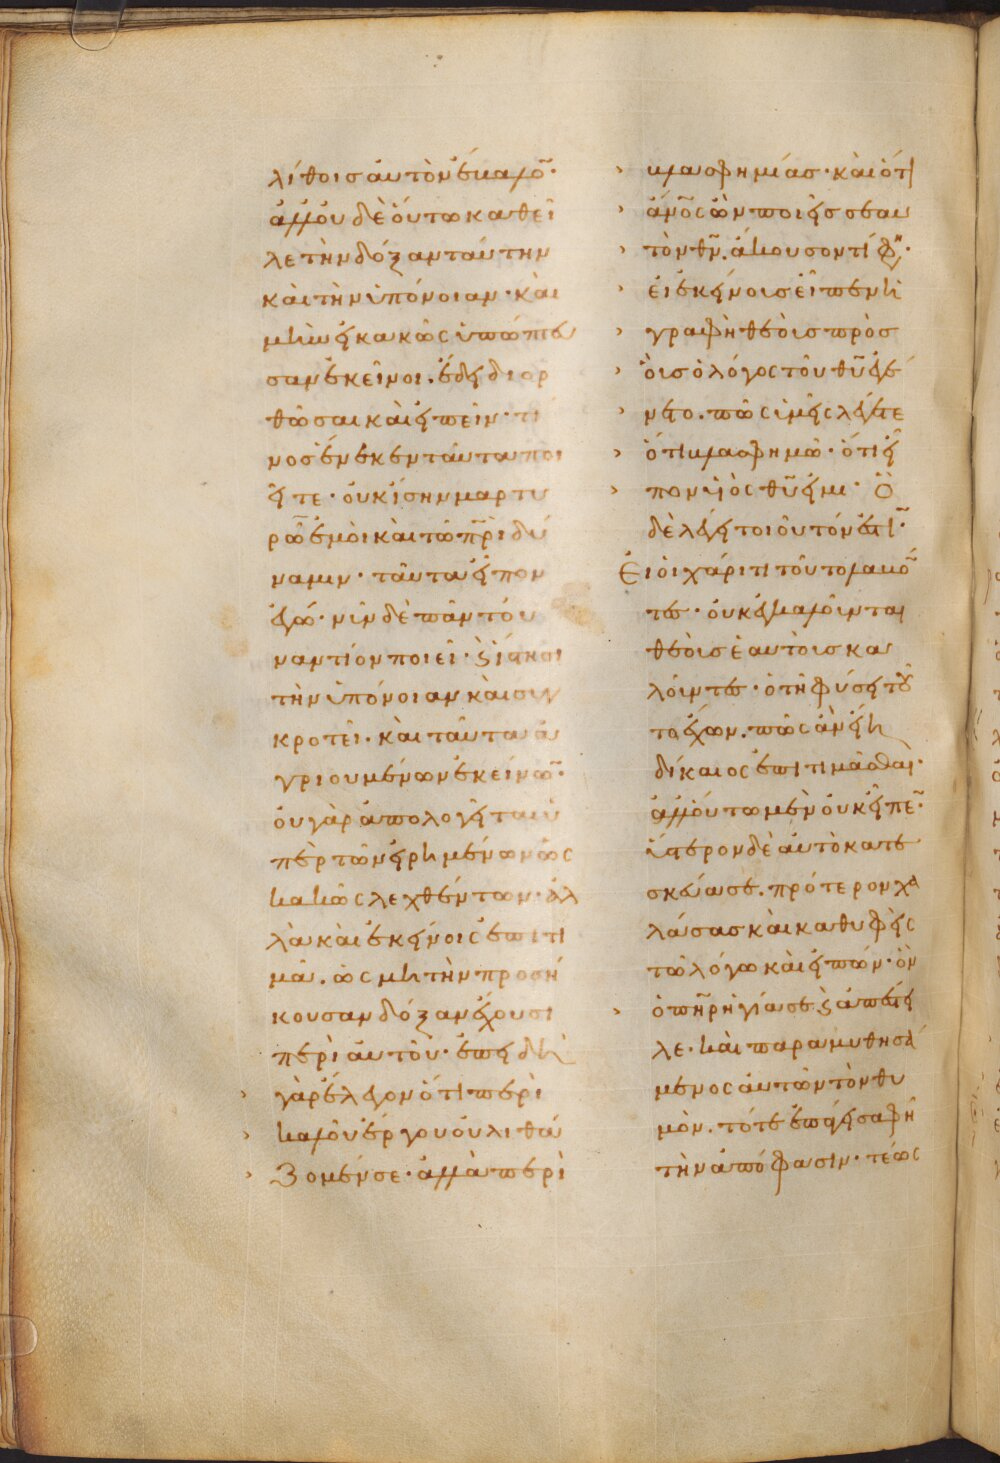 λίθοις αὐτὸν ἔβαλλο̅·
ἀλλ' οὐδὲ οὕτω καθεῖ
λε τὴν δόξαν ταύτην
καὶ τὴν ὑπόνοιαν· καὶ
μὴν εἰ κακῶς ὑπώπτευ
σαν ἐκεῖνοι. ἔδει διορ
θῶσαι καὶ εἰπεῖν· τί
νος ἕνεκεν ταῦτα ποι
εῖτε· οὐκ ἴσην μαρτυ
ρῶ ἐμοὶ καὶ τῶ πρ̅ὶ δύ
ναμιν· ταῦτα εἶπον
ἐγώ· νῦν δὲ πᾶν του
ναντίον ποιεῖ· ϗ ἵστησι
τὴν ὑπόνοιαν καὶ συγ
κροτεῖ· καὶ ταῦτα ἀ
γριουμένων ἐκείνω̅·
οὐ γὰρ ἀπολογεῖται ὑ
πὲρ τῶν εἰρημένων ὡς
κακῶς λεχθέντων· ἀλ
λὰ καὶ ἐκείνοις ἐπιτι
μᾶ. ὡς μὴ τὴν προσή
κουσαν δόξαν ἔχουσι
περὶ αὐτοῦ· ἐπειδὴ
γὰρ ἔλεγον ὅτι περὶ
καλοῦ ἔργου οὐ λιθά
ζομέν σε· ἀλλὰ περὶ
βλασφημίας· καὶ ὅτι
ἄν̅ο̅ς ὢν ποιεῖς σεαυ
τὸν θ̅ν̅. ἄκουσον τί φη·
εἰ ἐκείνοις εἶπεν ἡ
γραφὴ θεοῖς πρὸς
οὓς ὁ λόγος τοῦ θ̅υ̅ ἐγέ
νετο. πῶς ὑμεῖς λέγετε
ὅτι βλασφημῶ· ὅτι εἶ
πον υἱὸς θ̅υ̅ εἰμι· Ὃ
δὲ λέγει τοιοῦτόν ἐστι̅·
Εἰ οἱ χάριτι τοῦτο λαβό̅
τες· οὐκ ἐγκαλοῦνται
θεοὺς ἑαυτοὺς κα
λοῦντες· ὁ τῆ φύσει τοῦ
το ἔχων. πῶς ἂν εἴη
δίκαιος ἐπιτιμᾶσθαι·
ἀλλ' οὕτω μὲν οὐκ εἶπε̅·
ὕστερον δὲ αὐτὸ κατε
σκεύασε. πρότερον χα
λάσας καὶ καθυφεὶς
τῶ λόγω καὶ εἰπών· ὃν
ὁ π̅η̅ρ̅ ἡγίασε ϗ ἀπέστει
λε· καὶ παραμυθησά
μενος αὐτῶν τὸν θυ
μὸν. τότε ἐπάγει σαφῆ
τὴν ἀπόφασιν· τέως